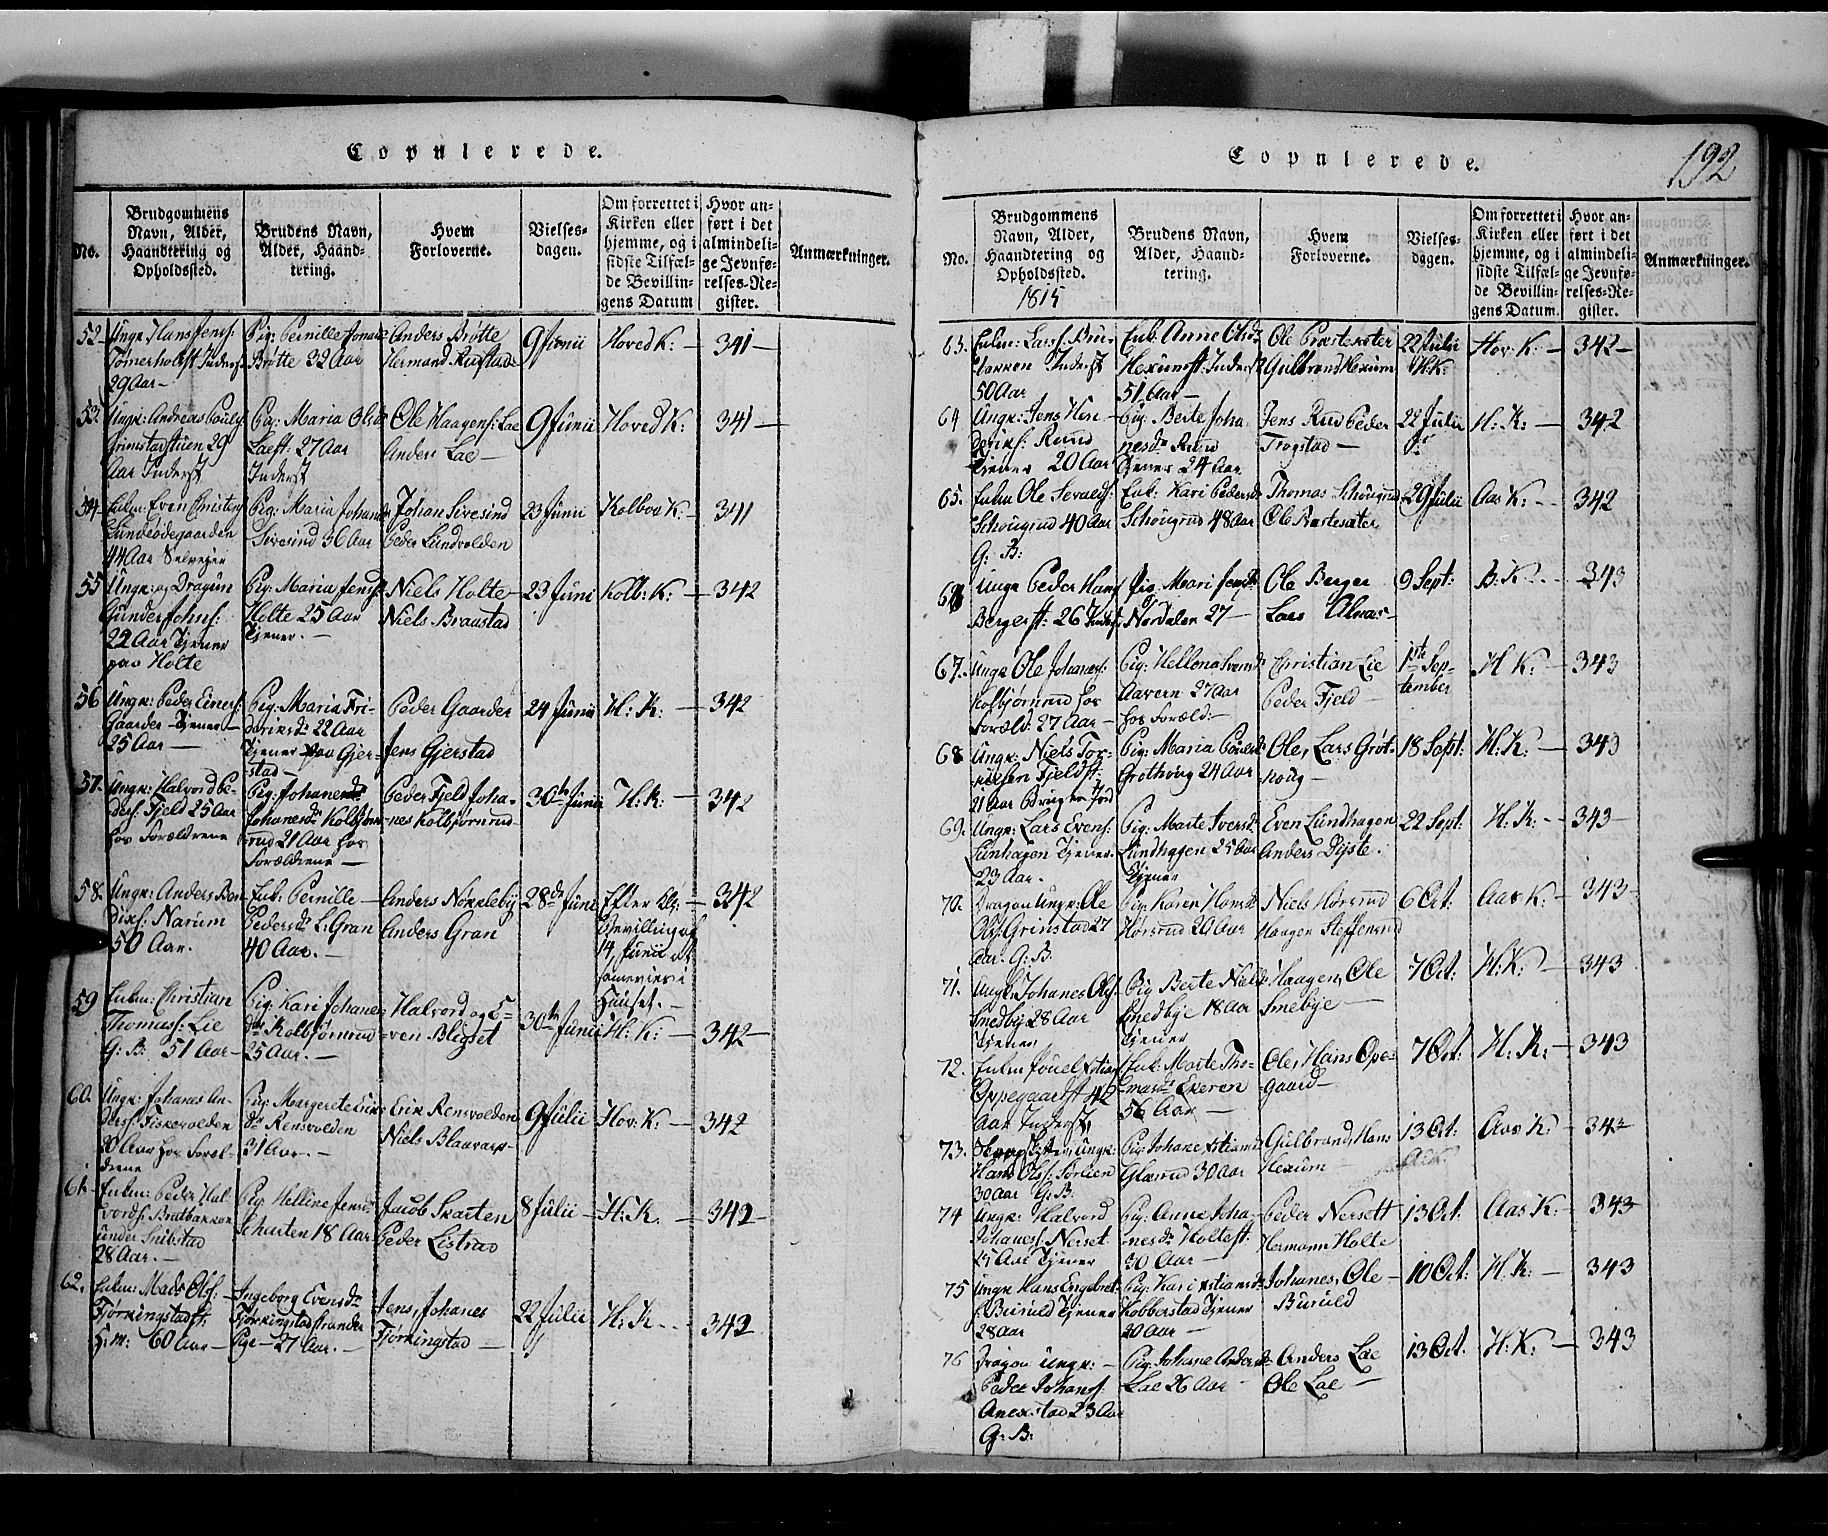 Copulerede.
No.
Brudgommens
Navn, Alder,
Haandtering og
Opholdssted.
Brudens Navn,
Alder, Haand-
tering.
Hvem
Forloverne.
Vielses-
dagen.
Om forrettet i
Kirken eller
hjemme, og i
sidste Tilfæl-
de Bevillin-
gens Datum
Hvor an-
ført i det
almindeli-
ge Jevnfø-
relses-Re-
gister.
Anmærkninger.
52
Ungk: Hans Jens:
29 Aar —
Pig: Pernille
Brøtte 32 Aar
Anders Brøtte
Hermand Rustad
9 Junii
Hoved K: —
341 —
53.
Ungk: Andreas
Grimstadstuen 29
Aar Inderst
Pig: Maria Olsd
Laest: 27 Aar
Inderst
Ole Haagens: Lae
Anders Lae —
9 Junii
Hoved K:
341 —
54
Enkm: Even Christens
44 Aar Selveyer
Pig: Maria Johand
Sivesind 36 Aar
Johan Sivesind
Peder Lundvolden
23 Junii
Kolboe K. —
341
55
Ungk: og Dragun
Gunder Johns:
22 Aar Tjener
paa Holte
Pig: Maria Jensd
Holte 25 Aar
Tjener. —
Niels Holte
Niels Braastad
23 Juni
Kolb: K: —
342
56
Ungk: Peder Einers:
Gaarder — Tjener —
25 Aar —
Pig: Maria Fri-
deriksd: 22 Aar
Tjener paa Gjer-
stad —
Peder Gaarder
Jens Gjerstad
24 Junii
H: K: —
342
57.
Ungk: Halvord Pe-
ders: Fjeld 25 Aar
hos Forældrene
Pig: Johane
Johanesd: Kolbjørns
rud 21 Aar hos
Forældrene —
Peder Fjeld Joha-
nes Kolbjørnrud
30te Junii
H: K: —
342
58.
Ungk: Anders Ben
dixs: Narum
50 Aar.
Enk: Pernille —
Pedersd: L: Gran
40 Aar. —
Anders Nøkkleby
Anders Gran
28de Juni
Efter
Bevilling af
14, Junii
i
Huuset. —
342
59
Enkm: Christian
Thomass: Lie
G: B: 51 Aar —
Pig: Kari Johanes
d: Kolbjørnrud
25 Aar. —
Halvord og E=
ven Bligset
30te Junii
H: K: —
342 —
60.
Ungk: Johanes An-
ders: Fiskevolden
30 Aar hos Foræl-
drene
Pig: Margerete Eriks
d: Rensvolden
31 Aar. —
Erik Rensvolden
Niels Blaavarp —
9 Julii
Hov: K: —
342
61
Enkm: Peder Hal
vords: Bratbakken
28 Aar. —
Pig: Helline Jensd:
Schurten 18 Aar
Jacob Skarten
Peder Listrud
8 Julii —
H: K. —
342 —
62.
Enkm: Mads Ols: —
Fjørkingstadst:
H: m: 60 Aar —
Ingeborg Evensd:
Fjørkingstadstranden
Pige — 27 Aar. —
Jens, Johanes
Fjørkingstad —
22 Julii
H: K. . .
342
Copulerede.
192
No.
Brudgommens
Navn, Alder,
Haandtering og
Opholdssted.
1815
Brudens Navn,
Alder, Haand-
tering.
Hvem
Forloverne.
Vielses-
dagen.
Om forrettet i
Kirken eller
hjemme, og i
sidste Tilfæl-
de Bevillin-
gens Datum.
Hvor an-
ført i det
almindeli-
ge Jevnfø-
relses-Re-
gister.
Anmærkninger.
63.
Enkm: Lars:
Inderst
50 Aar
Enk: Anne Olsd:
Hexumst: Inderst
51 Aar —
Ole Præstesæter
Gulbrand Hexum
22 Julii
H: K:
Hov: K: —
342 —
64
Ungk: Jens Hen
driks: Ruud
Tjener 20 Aar
Pig: Berte Joha
nesd: Ruud
Tjener 24 Aar
Jens Rud Peder
Trogstad —
22 Julii
H: K: —
342
65.
Enkm Ole Sevalds:
Schöugrud 40 Aar
G: B:
Enk: Kari Pedersd
Schöugrud 48 Aar
Thomas Schöugrud
29 Julii
Aas K: —
342
66
Ungk Peder Hans
Bergerst: 26
Pig Mari
Nordalen 27 —
Ole Berger
Lars Almar —
9 Sept:
B: K: —
343
67.
Ungk Ole Johanes:
Kolbjørnrud hos
Foræld: 27 Aar —
Pig: Hellena
Aavern 27 Aar
hos Foræld: —
Christian Lie
Peder Fjeld —
1ste Sep-
tember
H K: —
343
68
Ungk: Niels Tor-
kilsen Fjeldst:
21 Aar Bruger Jord
Pig: Maria
24 Aar
Ole, Lars Grøt-
houg —
18 Sept:
H: K: —
343
69.
Ungk: Lars Evens:
Lunhagen Tjener
23 Aar.
Pig: Marte Iversd:
Lundhagen 25 Aar
Tjener
Even Lundhagen
Anders Dyste.
22 Sept:
H: K: —
343 —
70.
Dragon Ungk: Ole
Ols: Grimstad 27
Aar. G: B.
Pig: Karen Hansd:
Hørsrud 20 Aar
Niels Hørsrud
Haagen Steffensrud
6 Oct:
Aas K: —
343 —
71.
Ungk: Johanes Ols:
Smedbye 28 Aar
Tjener
Pig Berte Nielsd
Smedbye 18 Aar
Tjener
Haagen, Ole
Smebye —
7 Oct:
H: K: —
343
72.
Enkm Jouel
Oppegaardst 42
Aar Inderst,
Enk: Marte Tho-
masd: Ekeren
56 Aar —
Ole, Hans Ope-
gaard —
7 Oct:
H: K: —
343
73.
Ungk:
Hans Ols: Sørlien
30 Aar G: B.
Pig: Johane
Glæsrud 30 Aar
Gulbrand, Hans
Hexum —
13 Oct:
Aas K: —
343
74
Ungk: Halvord
Johanes: Nerset
Aar Tjener
Pig: Anne Joha-
nesd: Holtest:
30 Aar —
Peder Nersett
Hermann Holte
13 Oct.
Aas K: —
343
75
Ungk Hans Engebret
s: Buruld Tjener
28 Aar
Pig: Kari
Kobberstad Tjener
20 Aar —
Johanes, Ole —
Buruld
10 Oct:
H: K: —
343
76
Dragon Ungk: —
Peder Johans:
Anexstad 23 Aar
G: B:
Pig: Johane Andersd:
Lae 26 Aar —
Anders Lae
Ole Lae —
13 Oct.
H: K: —
343